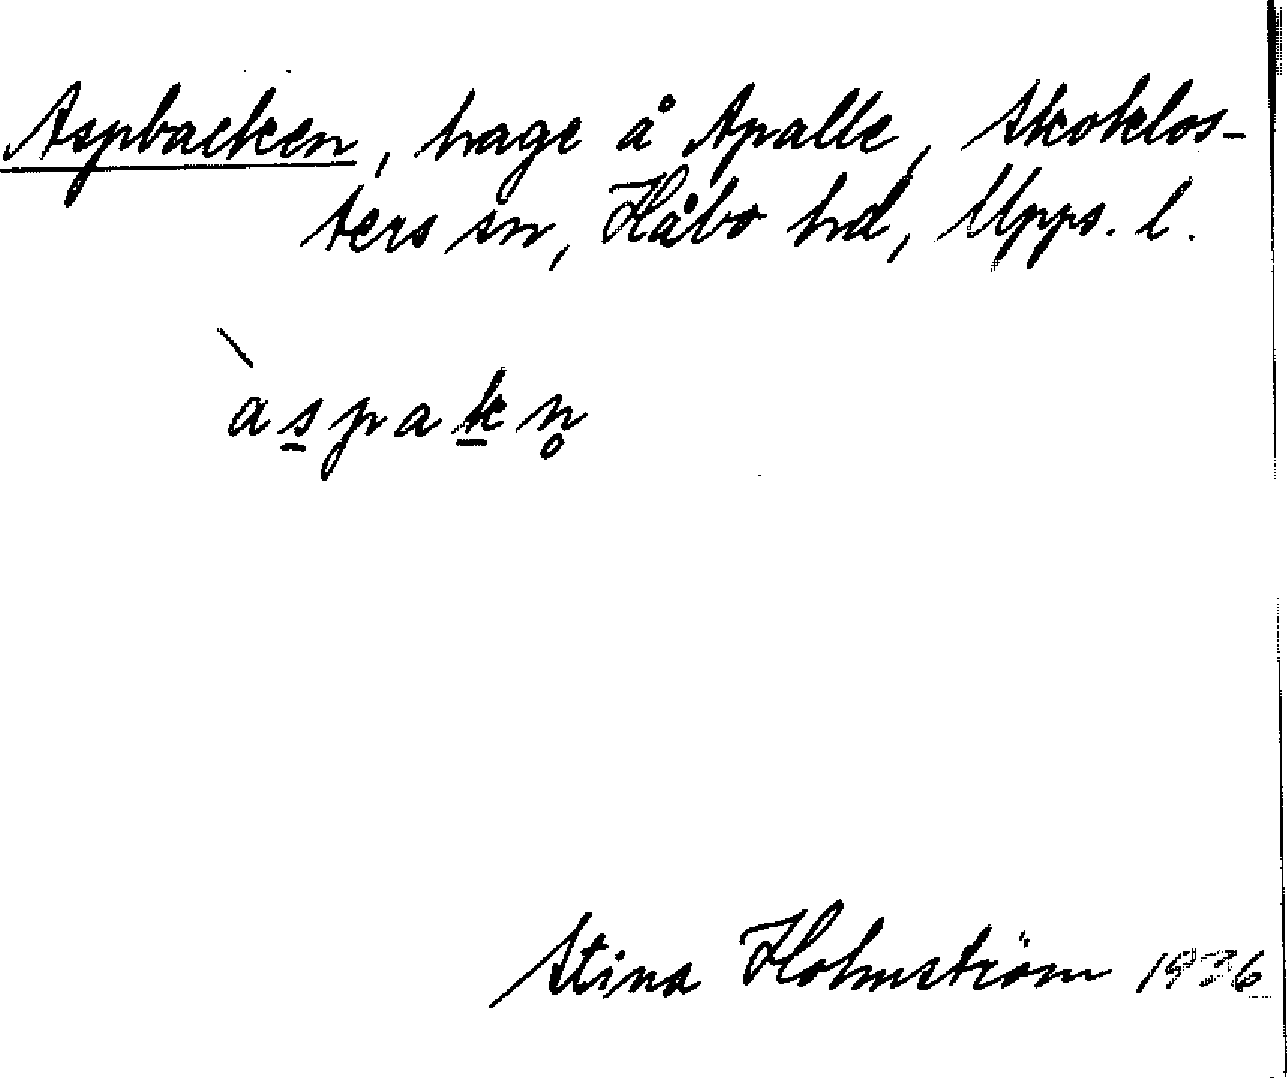 Aspbacken, hage å Apalle, Skoklos-
ters sn, Håbo hd, Upps. l.
às̲pak̲n̥
Stina Holmström 1936